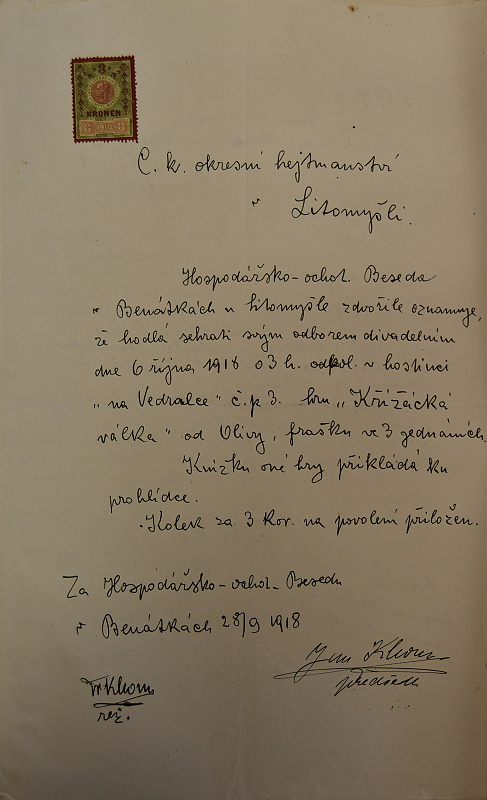 3
KRONEN
8 1910 8
C. k. okresní hejtmanství
v Litomyšli.
Hospodářsko-ochot. Beseda
v Benátkách u Litomyšle zdvořile oznamuje,
že hodlá sehrati svým odborem divadelním
dne 6 října 1918 o 3 h. odpol. v hostinci
„na Vedralce" č.p 3. hru „Křížácká
válka" od Olivy, frašku ve 3 jednáních.
Knížku oné hry přikládá ku
prohlídce.
Kolek za 3 Kor. na povolení přiložen.
Za Hospodářsko-ochot. Besedu
v Benátkách 28/9 1918
předseda
rež.